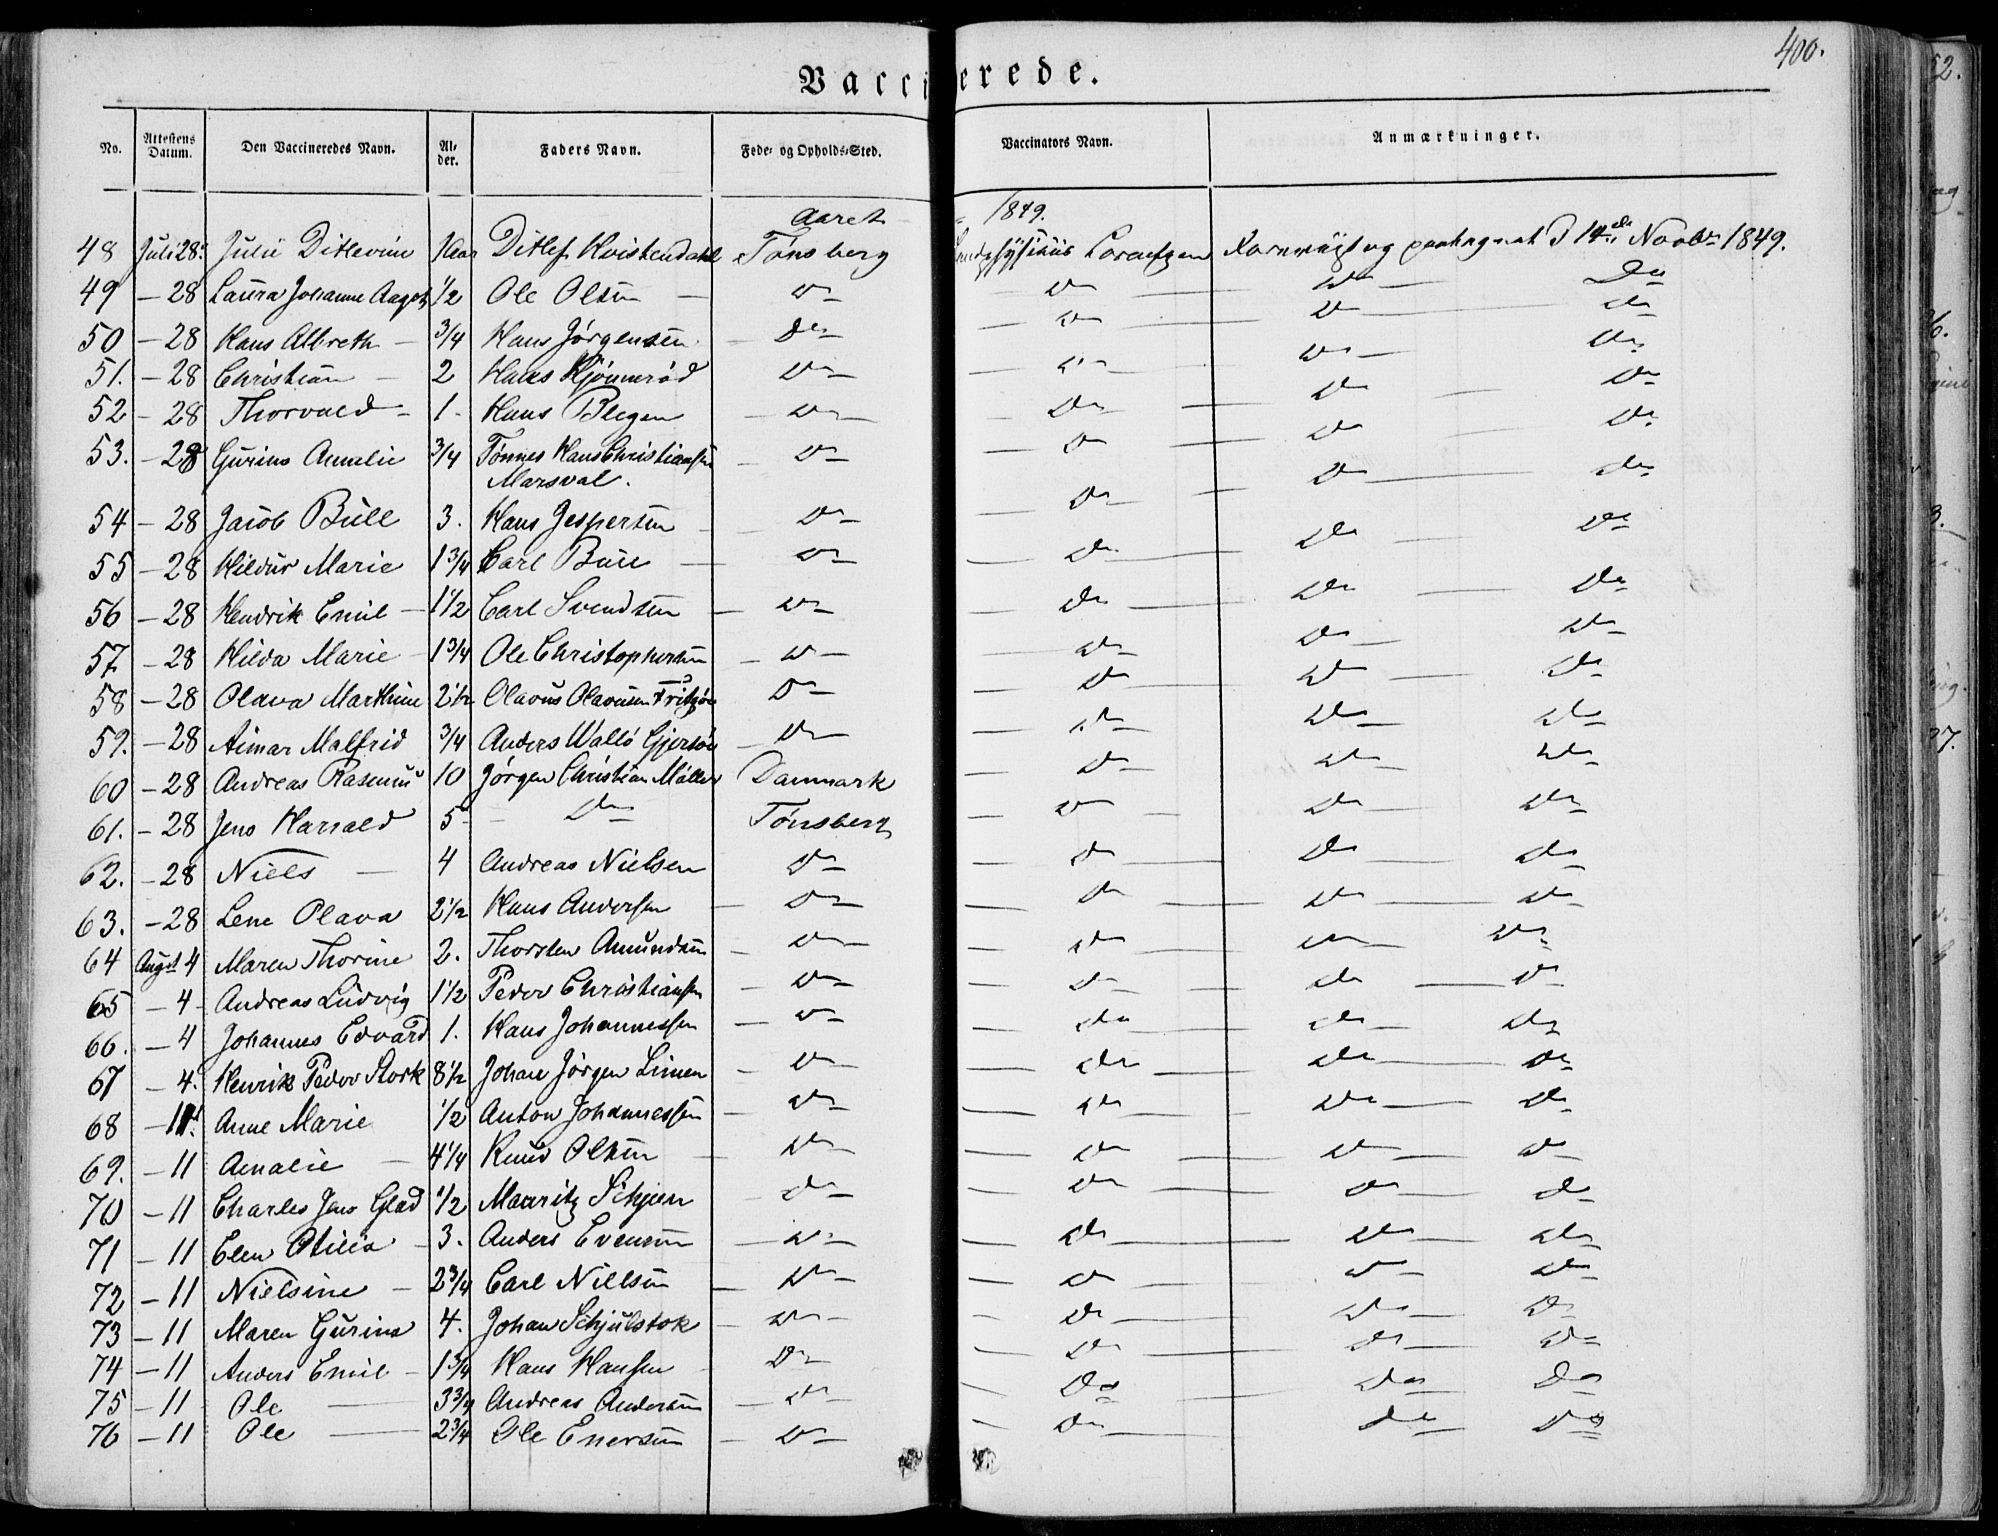 400.
Vaccinerede.
No. Attestens Datum. Den Vaccineredes Navn. Alder. Faders Navn. Føde- og Opholds-Sted. Vaccinators Navn. Anmærkninger.
Aaret 1849.
48 Juli 28. Julie Ditlevine 1 Aar Ditlef Hvistendahl Tønsberg Landphysicus Lorentzen 14de Novbr 1849.
49 – 28 Laura Johanne Aagot 1/2 Ole Olsen Do Do Do Do
50 – 28 Hans Albreth 3/4 Hans Jørgensen Do Do Do Do
51. – 28 Christian 2 Hans Kjønnerød Do Do Do Do
52 – 28 Thorvald 1 Hans Bregen Do Do Do Do
53. – 28 Gurine Amalie 3/4 Tønnes Hans Christiansen Do Do Do Do
Marsval.
54 – 28 Jacob Bull 3. Hans Jespersen Do Do Do Do
55 – 28 Hildur Marie 1 3/4 Carl Bull Do Do Do Do
56 – 28 Hendrik Emil 1 1/2 Carl Svendsen Do Do Do Do
57 – 28 Hilda Marie 1 3/4 Ole Christophersen Do Do Do Do
58 – 28 Olava Marthine 2 1/2 Olavus Olavusen Do Do Do Do
59. – 28 Aimar Malfrid 3/4 Anders Wallø Gjersøe Do Do Do Do
60 – 28 Andreas Rasmus 10 Jørgen Christian Møller Danmark Do Do Do
61. – 28 Jens Harald 5 Do Tønsberg Do Do Do
62. – 28 Niels 4 Andreas Nielsen Do Do Do Do
63. – 28 Lene Olava 2 1/2 Hans Andersen Do Do Do Do
64 Augst 4 Maren Thorine 2. Thorsten Amundsen Do Do Do Do
65 – 4 Andreas Ludvig 1 1/2 Peder Christiansen Do Do Do Do
66. – 4 Johannes Edvard 1. Hans Johannessen Do Do Do Do
67 – 4. Henrik Peder Stork 8 1/2 Johan Jørgen Linien Do Do Do Do
68 – 11. Anne Marie 1/2 Anton Johannessen Do Do Do Do
69. – 11 Amalie 4 1/4 Knud Olsen Do Do Do Do
70 – 11 Charles Jens Glad 1/2 Mauritz Schjen Do Do Do Do
71 – 11 Elen Otilia 3. Anders Evensen Do Do Do Do
72 – 11 Nielsine 2 3/4 Carl Nielsen Do Do Do Do
73 – 11 Maren Gurine 4. Johan Schjulstok Do Do Do Do
74 – 11 Anders Emil 1 3/4 Hans Hansen Do Do Do Do
75 – 11 Ole 3 3/4 Andreas Andersen Do Do Do Do
76 – 11 Ole 2 3/4 Ole Enersen Do Do Do Do